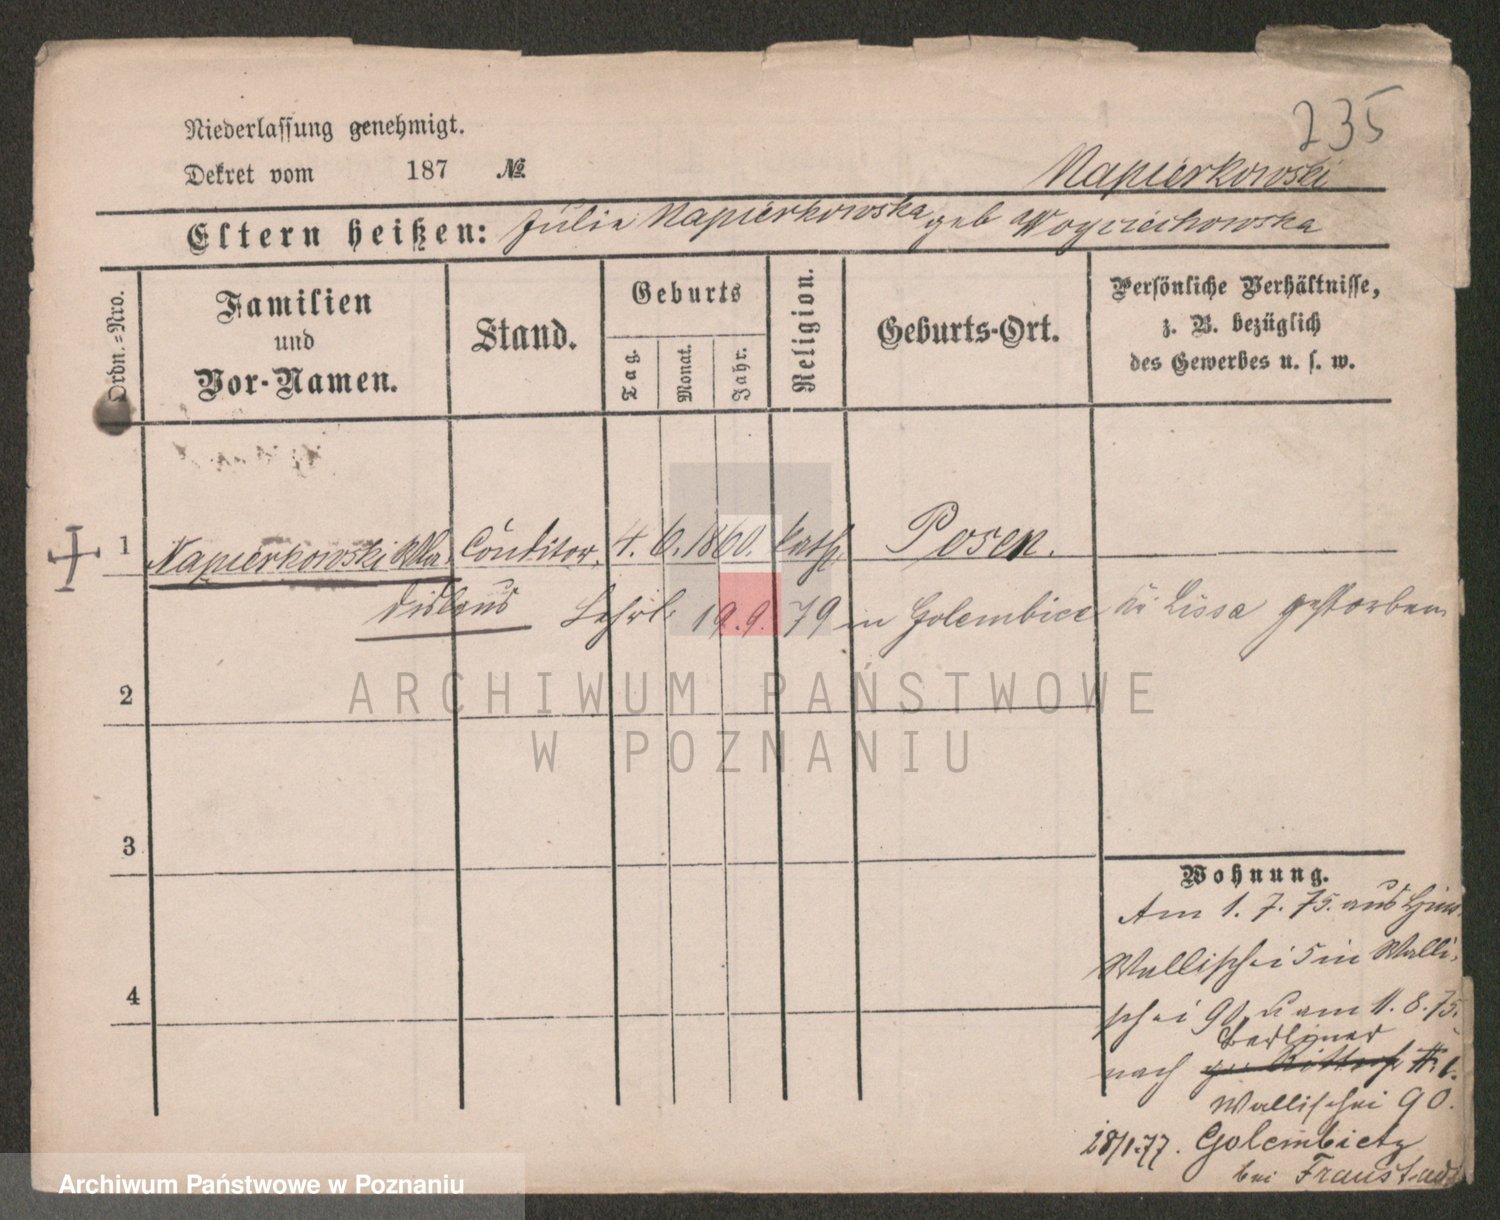 235
Niederlassung genehmigt.
Dekret vom 187 №.
Napierkowski
Eltern heißen: Julie Napierkowska geb Woyciechowska
Ordn.=Nro.
Familien
und
Vor-Namen.
Stand.
Geburts
Tag.
Monat.
Jahr.
Religion.
Geburts-Ort.
Persönliche Verhältnisse,
z. B. bezüglich
des Gewerbes u. s. w.
1 Napierkowski Wla- Conditor. 4. 6. 1860. kath. Posen.
dislaus Lehrl. 19. 9. 79 in Golembice Kr Lissa gestorben
2
ARCHIWUM PAŃSTWOWE
W POZNANIU
3
Wohnung.
Am 1. 7. 75. aus
Wallischei 5 in Walli-
schei 90, u am 11. 8. 75.
Berliner
nach
Wallischei 90.
28/1.77. Golembietz
bei Fraustadt
4
Archiwum Państwowe w Poznaniu